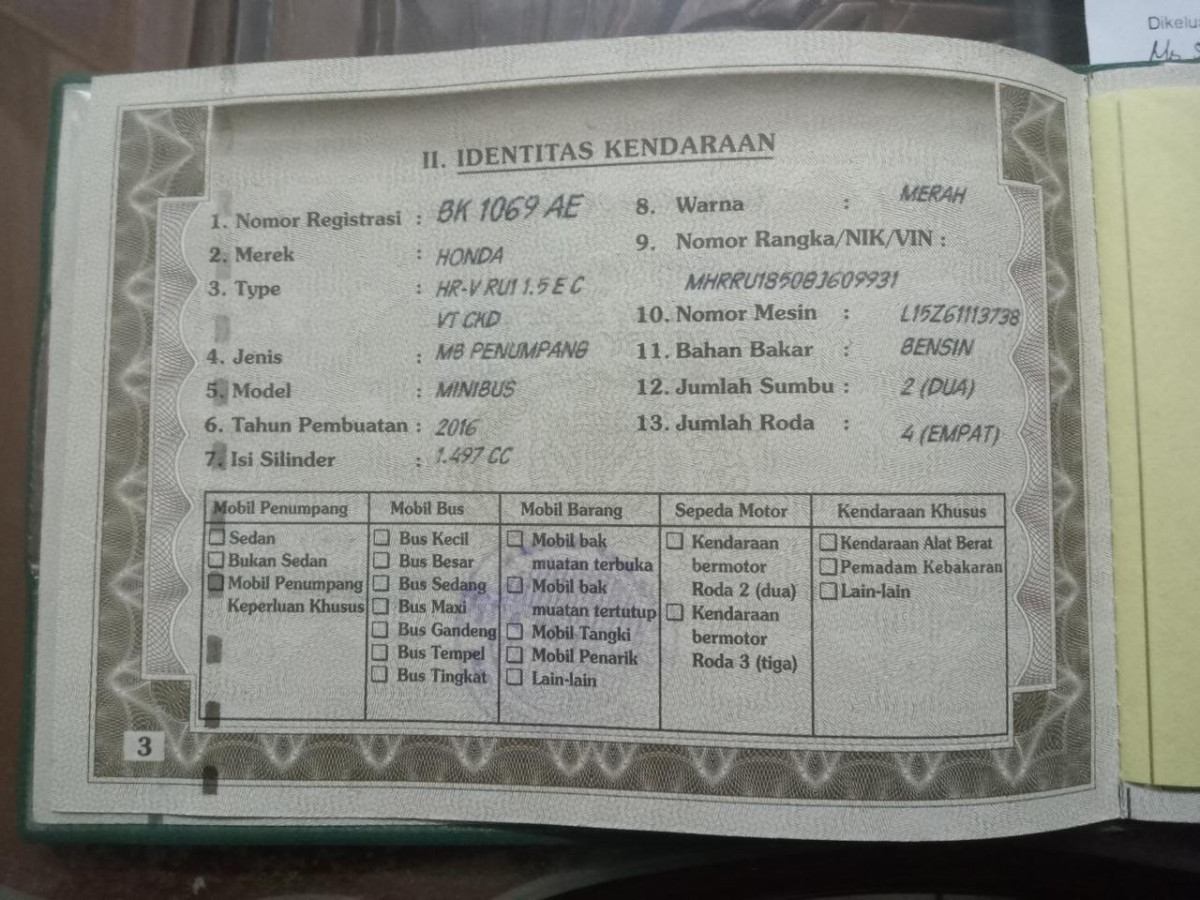 Dikelu
II. IDENTITAS KENDARAAN
1. Nomor Registrasi : BK 1069 AE
2. Merek : HONDA
3. Type : HR-V RU1 1.5 E C
VT CKD
4. Jenis : MB PENUMPANG
5. Model : MINIBUS
6. Tahun Pembuatan : 2016
7. Isi Silinder : 1.497 CC
8. Warna : MERAH
9. Nomor Rangka/NIK/VIN :
MHRRU1850BJ609931
10. Nomor Mesin : L15Z61113738
11. Bahan Bakar : BENSIN
12. Jumlah Sumbu : 2 (DUA)
13. Jumlah Roda : 4 (EMPAT)
Mobil Penumpang
Sedan
Bukan Sedan
Mobil Penumpang
Keperluan Khusus
Mobil Bus
Bus Kecil
Bus Besar
Bus Sedang
Bus Maxi
Bus Gandeng
Bus Tempel
Bus Tingkat
Mobil Barang
Mobil bak
muatan terbuka
Mobil bak
muatan tertutup
Mobil Tangki
Mobil Penarik
Lain-lain
Sepeda Motor
Kendaraan
bermotor
Roda 2 (dua)
Kendaraan
bermotor
Roda 3 (tiga)
Kendaraan Khusus
Kendaraan Alat Berat
Pemadam Kebakaran
Lain-lain
3